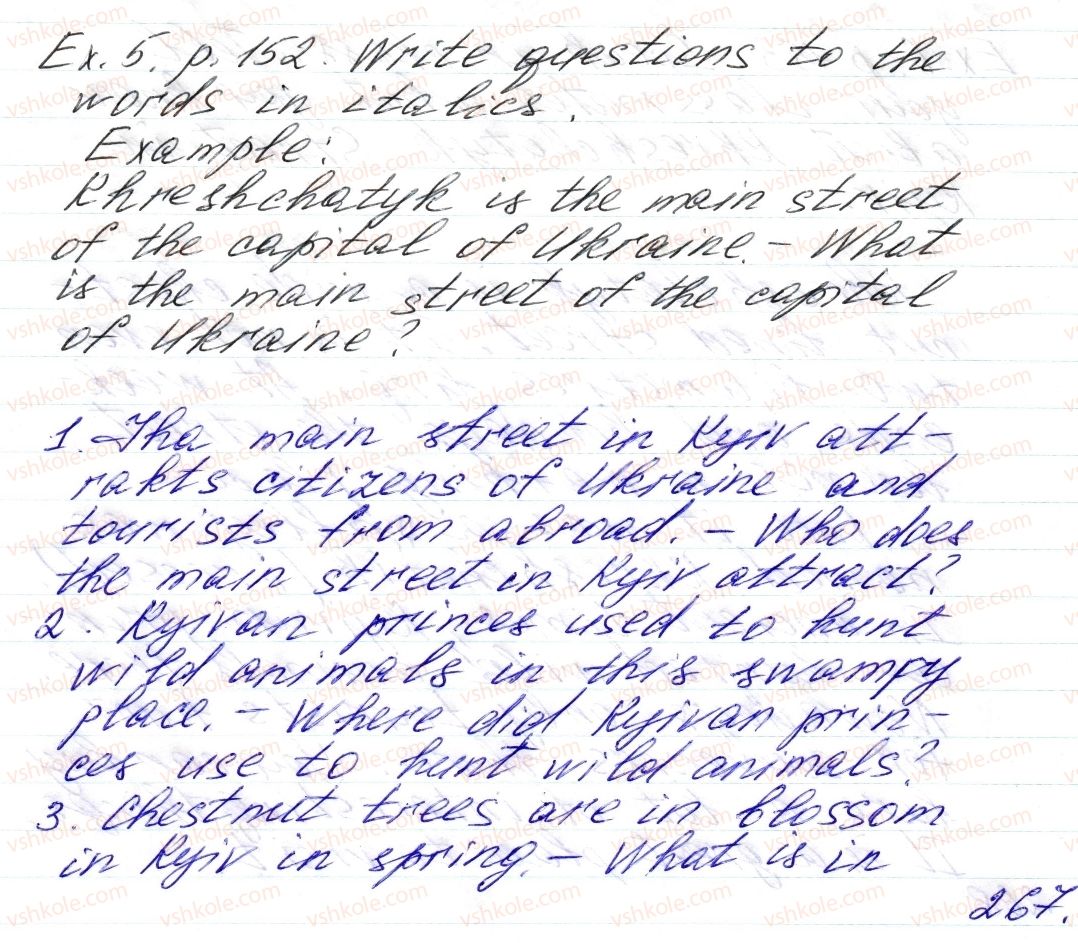 Ex. 5. p. 152. Write questions to the
words in italics.
Example:
Khreshchatyk is the main street
of the capital of Ukraine. – What
is the main street of the capital
of Ukraine?
1. Tha main street in Kyiv att-
rakts citizens of Ukraine and
tourists from abroad. – Who does
the main street in Kyiv attract?
2. Kyivan princes used to hunt
wild animals in this swampy
place. – Where did Kyivan prin-
ces use to hunt wild animals?
3. Chestnut trees are in blossom
in Kyiv in spring. – What is in
267.